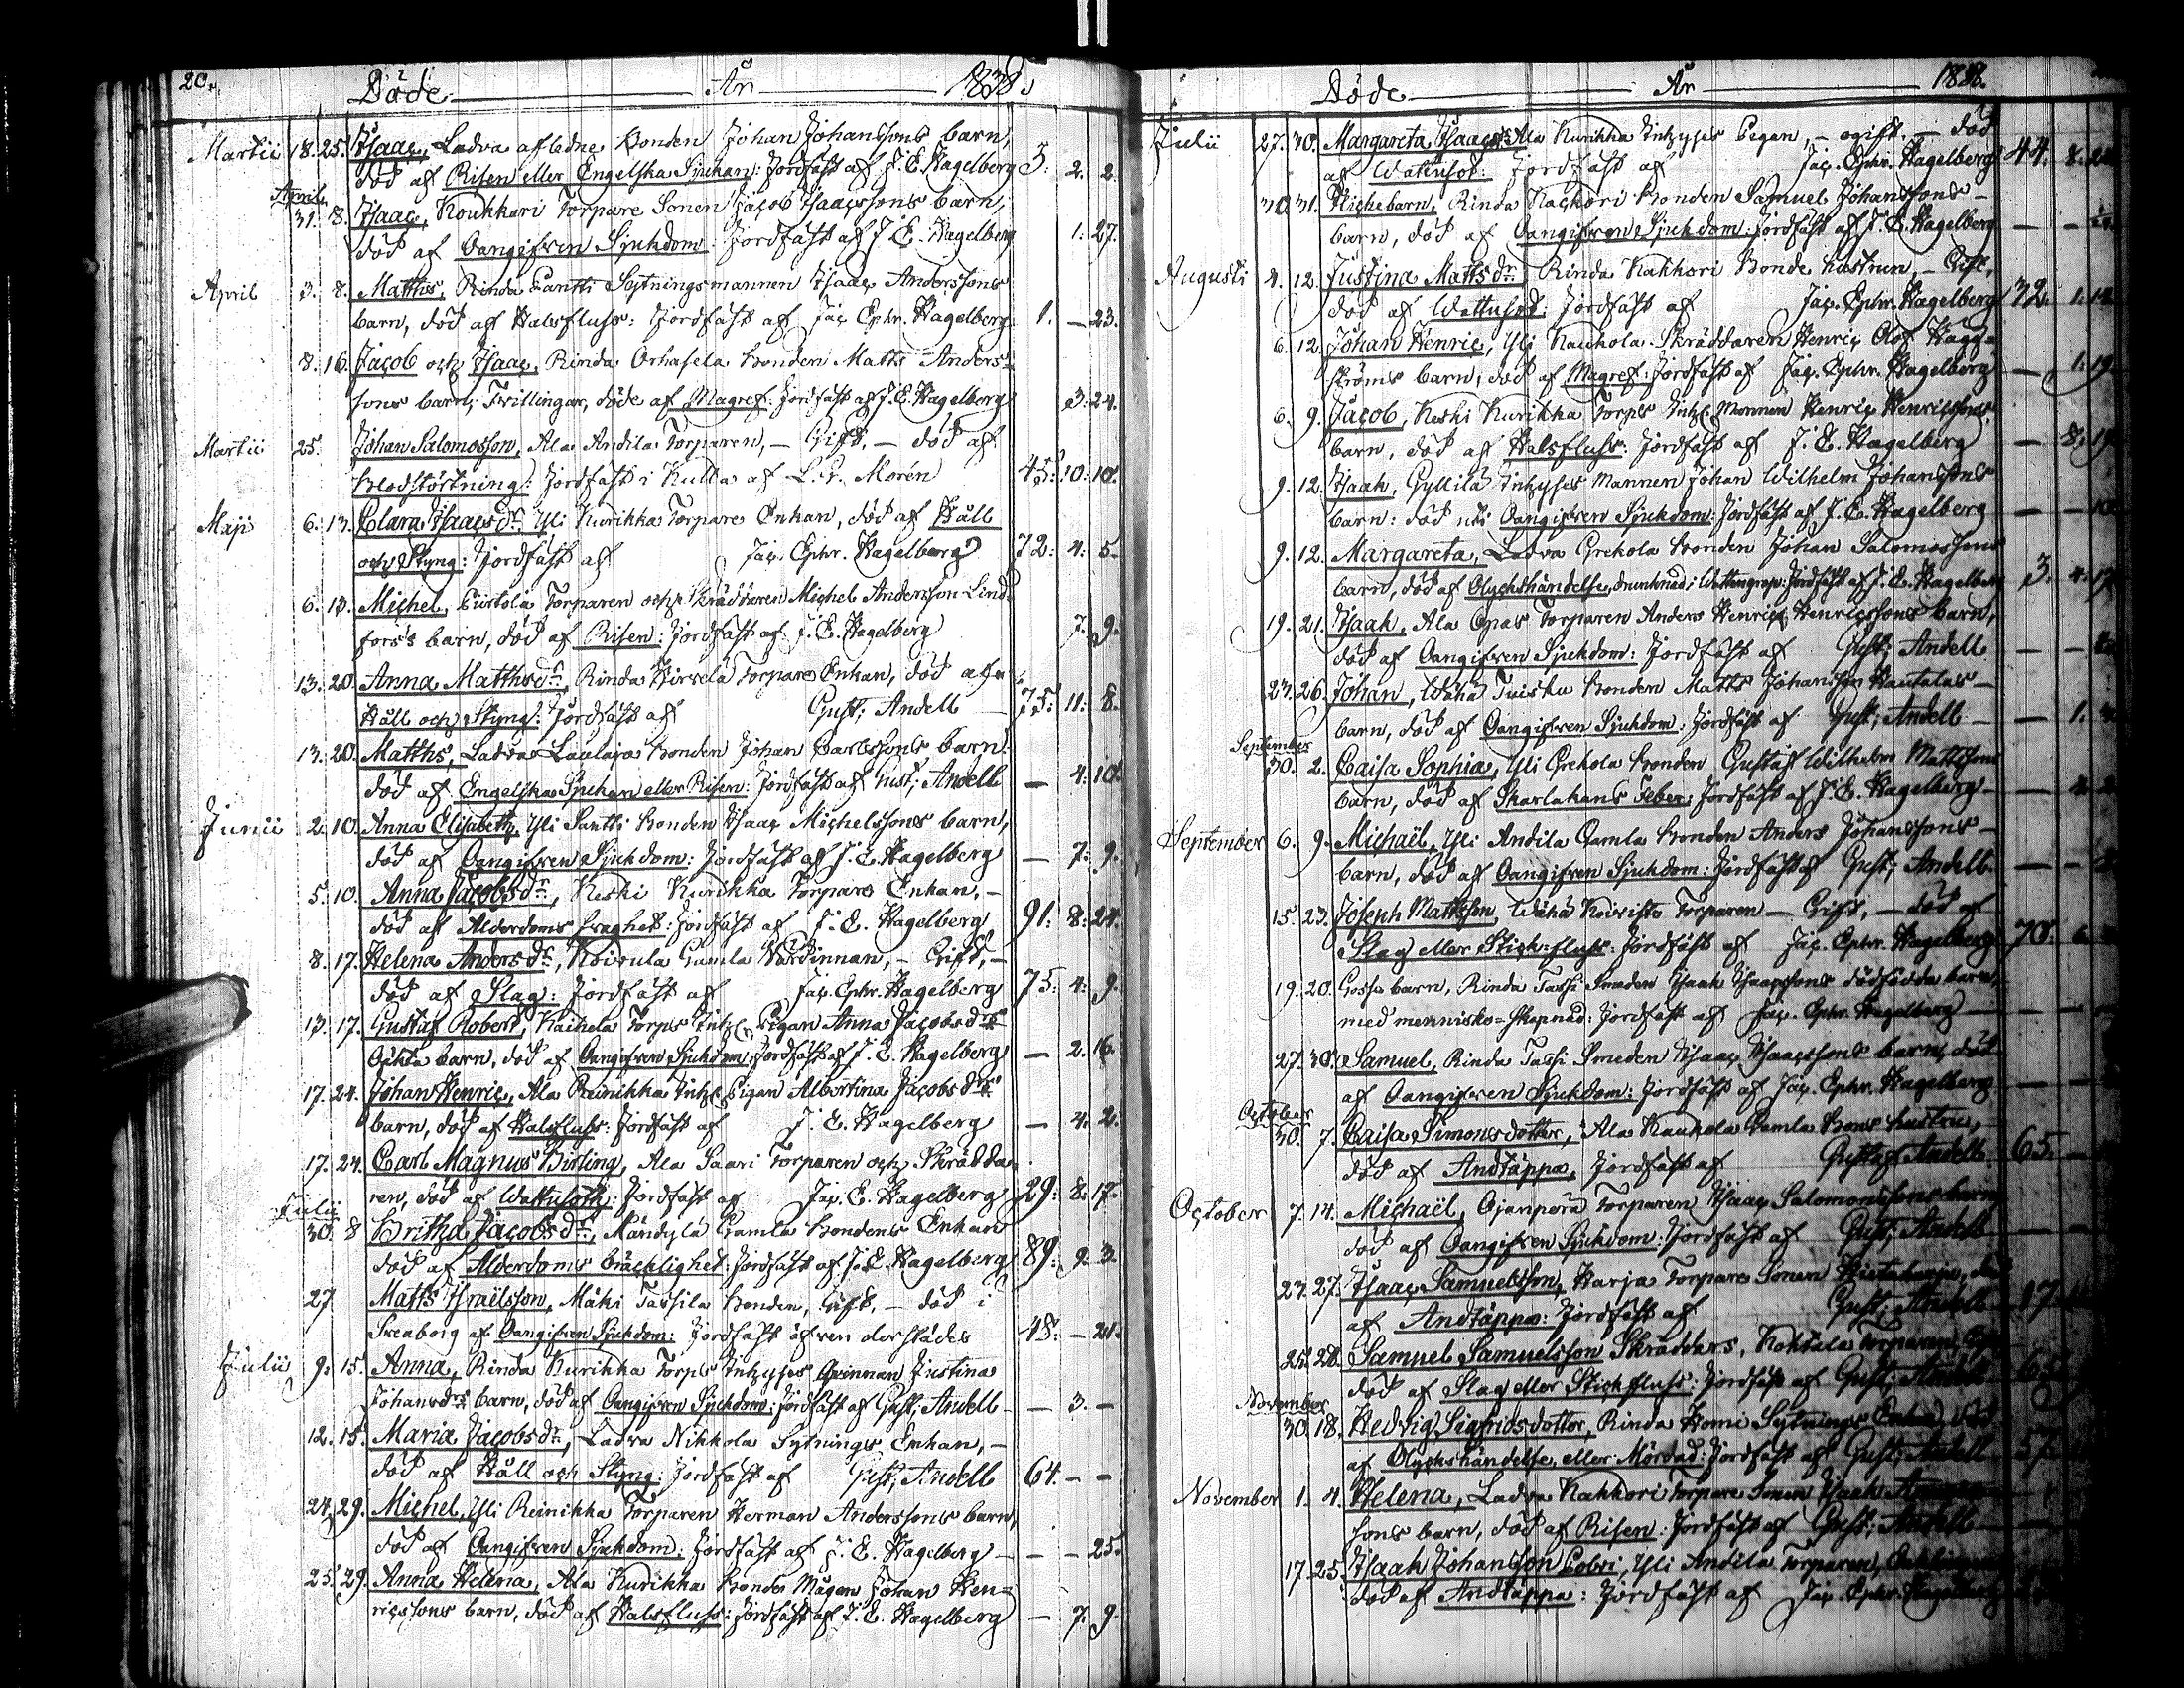 20.
Döde År 1838.
Martii 18. 25. Isaac, Ladva afledne Bonden Johan Johanssons barn,
död af Risen eller Engelska Sjukan: Jordfäst af J. E. Hagelberg 3: 2. 2.
April 31. 8. Isaac, Koukkari Torpare Sonen Jacob Isaacssons barn,
död af Oangifven Sjukdom: Jordfäst af J. E. Hagelberg 1: 27.
April 3. 8. Matths, Rinda Pantti Sytningsmannen Isaac Anderssons
barn, död af Halsfluss: Jordfäst af Jac. Ephr. Hagelberg 1. — 23.
8. 16. Jacob och Isaac, Rinda Orhasela bonden Matts Anders-
sons barn, Tvillingar, döde af Magref: Jordfäst af J. E. Hagelberg 3: 24.
Martii 25. Johan Salomosson, Ala Andila Torparen, — Gift, — död af
blodstörtning: Jordfäst i Kulla af L. G. Morén 45: 10: 10.
Maji 6. 13. Clara Isaacs dr, Yli Kurikka Torpare Enkan, död af Håll
och Styng: Jordfäst af Jac. Ephr. Hagelberg 72: 4: 5.
6. 13. Michel, Piirtola Torparen och Skräddaren Michel Andersson Lind-
fors's barn, död af Risen: Jordfäst af J. E. Hagelberg 7. 9.
13. 20. Anna Matths dr, Rinda Hirvelä Torpare Enkan, död af
Håll och Styng: Jordfäst af Gust; Andell — 75: 11: 8.
13. 20. Matths, Ladva Laulaja bonden Johan Carlssons barn
död af Engelska Sjukan eller Risen: Jordfäst af Gust; Andell — 4: 10.
Junii 2. 10. Anna Elisabeth, Yli Santti bonden Isaac Michelssons barn,
död af Oangifven Sjukdom: Jordfäst af J. E. Hagelberg — 7: 9.
5. 10. Anna Jacobs dr, Keski Kurikka Torpare Enkan, —
död af Alderdoms Svaghet: Jordfäst af J. E. Hagelberg 91: 8: 24.
8. 17. Helena Anders dr, Koivula Gamla Värdinnan, — Gift, —
död af Slag: Jordfäst af Jac. Ephr. Hagelberg 75: 4: 9.
13. 17. Gustaf Robert, Kaihela Torps Inhs. Pigan Anna Jacobs drs
Oäkta barn, död af Oangifven Sjukdom: Jordfäst af J. E. Hagelberg — 2. 16.
17. 24. Johan Henric, Ala Reinikka Inhs. Pigan Albertina Jacobs drs
barn, död af Halsfluss: Jordfäst af J. E. Hagelberg — 4. 2.
17. 24. Carl Magnus Birling, Ala Saari Torparen och Skrädda-
ren, död af Wattusoth: Jordfäst af Jac. E. Hagelberg 29: 8: 17.
Julii 30. 8 Britha Jacobs dr, Mändylä Gamla Bondens Enkan
död af Alderdoms bräcklighet: Jordfäst af J. E. Hagelberg 89: 9. 3.
27 Matts Israëlsson, Mäki Tassila bonden, Gift, — död i
Sveaborg af Oangifven Sjukdom: Jordfäst äfven derstädes 48: — 21.
Julii 9. 15. Anna, Rinda Kurikka Torps Inhyses Qvinnan Justina
Johans drs barn, död af Oangifven Sjukdom: Jordfäst af Gust; Andell — 3. —
12. 15. Maria Jacobs dr, Ladva Nikkola Sytnings Enkan, —
död af Håll och Styng: Jordfäst af Gust; Andell 64. — —
24. 29. Michel, Yli Reinikka Torparen Herman Anderssons barn,
död af Oangifven Sjukdom: Jordfäst af J. E. Hagelberg — — 25.
25. 29. Anna Helena, Ala Kurikka bonde Mågen Johan Hen-
ricssons barn, död af Halsfluss: Jordfäst af J. E. Hagelberg — 7. 9.
Döde År 1838.
Julii 27. 30. Margareta Isaacs dr Ala Kurikka Inhyses Pigan, — ogift, — död
af Wattusot: Jordfäst af Jac. Ephr. Hagelberg 44. 8.
30. 31. Flickebarn, Rinda Kackori bonden Samuel Johanssons —
barn, död af Oangifven Sjukdom: Jordfäst af J. E. Hagelberg — —
Augusti 4. 12. Justina Matts dr Rinda Kakkori Bonde hustrun, — Gift,
död af Wattusot: Jordfäst af Jac. Ephr. Hagelberg 32. 1. 14.
6. 12. Johan Henric, Yli Kaukola Skräddaren Henric Olof Hägg-
ströms barn, död af Magref: Jordfäst af Jac. Ephr. Hagelberg — 1. 19.
6. 9. Jacob, Keski Kurikka Torps Inhs. Mannen Henric Henricssons
barn, död af Halsfluss: Jordfäst af J. E. Hagelberg — 8. 19.
9. 12. Isaak, Gyllilä Inhyses Mannen Johan Wilhelm Johanssons
barn: död uti Oangifven Sjukdom: Jordfäst af J. E. Hagelberg — —
9. 12. Margareta, Ladva Grekola bonden Johan Salomossons
barn, död af Olyckshändelse, drunknad i Wattengrop: Jordfäst af J. E. Hagelberg 3. 4. 17.
19. 21. Isaak, Ala Opas Torparen Anders Henric Henricssons barn,
död af Oangifven Sjukdom: Jordfäst af Gust; Andell — —
23. 26. Johan, Wähä Tuisku bonden Matts Johansson Hautalas —
barn, död af Oangifven Sjukdom: Jordfäst af Gust; Andell — — 1.
September 30. 2. Caisa Sophia, Yli Grekola bonden Gustaf Wilhelm Mattssons
barn, död af Skarlakans Feber: Jordfäst af J. E. Hagelberg —
September 6. 9. Michaël, Yli Andila Gamla bonden Anders Johanssons —
barn, död af Oangifven Sjukdom: Jordfäst af Gust; Andell — —
15. 23. Joseph Mattsson, Wähä Koivisto Torparen — Gift, — död af
Slag eller Stick-fluss: Jordfäst af Jac. Ephr. Hagelberg 70.
19. 20. Gosse barn, Rinda Tassi Smeden Isaak Isaacssons dödfödda barn,
med mennisko-skepnad: Jordfäst af Jac. Ephr. Hagelberg — —
27. 30. Samuel, Rinda Tassi Smeden Isaac Isaacssons barn, död
af Oangifven Sjukdom: Jordfäst af Jac. Ephr. Hagelberg — —
October 30. 7. Caisa Simonsdotter, Ala Kaukola Gamla bonde hustru,
död af Andtäppa, Jordfäst af Gustaf Andell 65.
October 7. 14. Michaël, Ojanperä Torparen Isaac Salomonssons barn
död af Oangifven Sjukdom: Jordfäst af Gust; Andell
23. 27. Isaac Samuelsson, Harja Torpare Sonen
af Andtäppa: Jordfäst af Gust; Andell 17.
25. 28. Samuel Samuelsson Skräddars, Torparen,
död af Slag eller Stickfluss: Jordfäst af Gust; Andell
November 30. 18. Hedvig Sigfridsdotter, Rinda Homi Sytnings Enkan, död
af Olyckshändelse eller Mördad: Jordfäst af Gust; Andell
November 1. 4. Helena, Ladva Kakkori Torpare Sonen Isaak
sons barn, död af Risen: Jordfäst af Gust; Andell
17. 25. Isaak Johansson Lobri, Yli Andila Torparen,
död af Andtäppa: Jordfäst af Jac. Ephr. Hagelberg